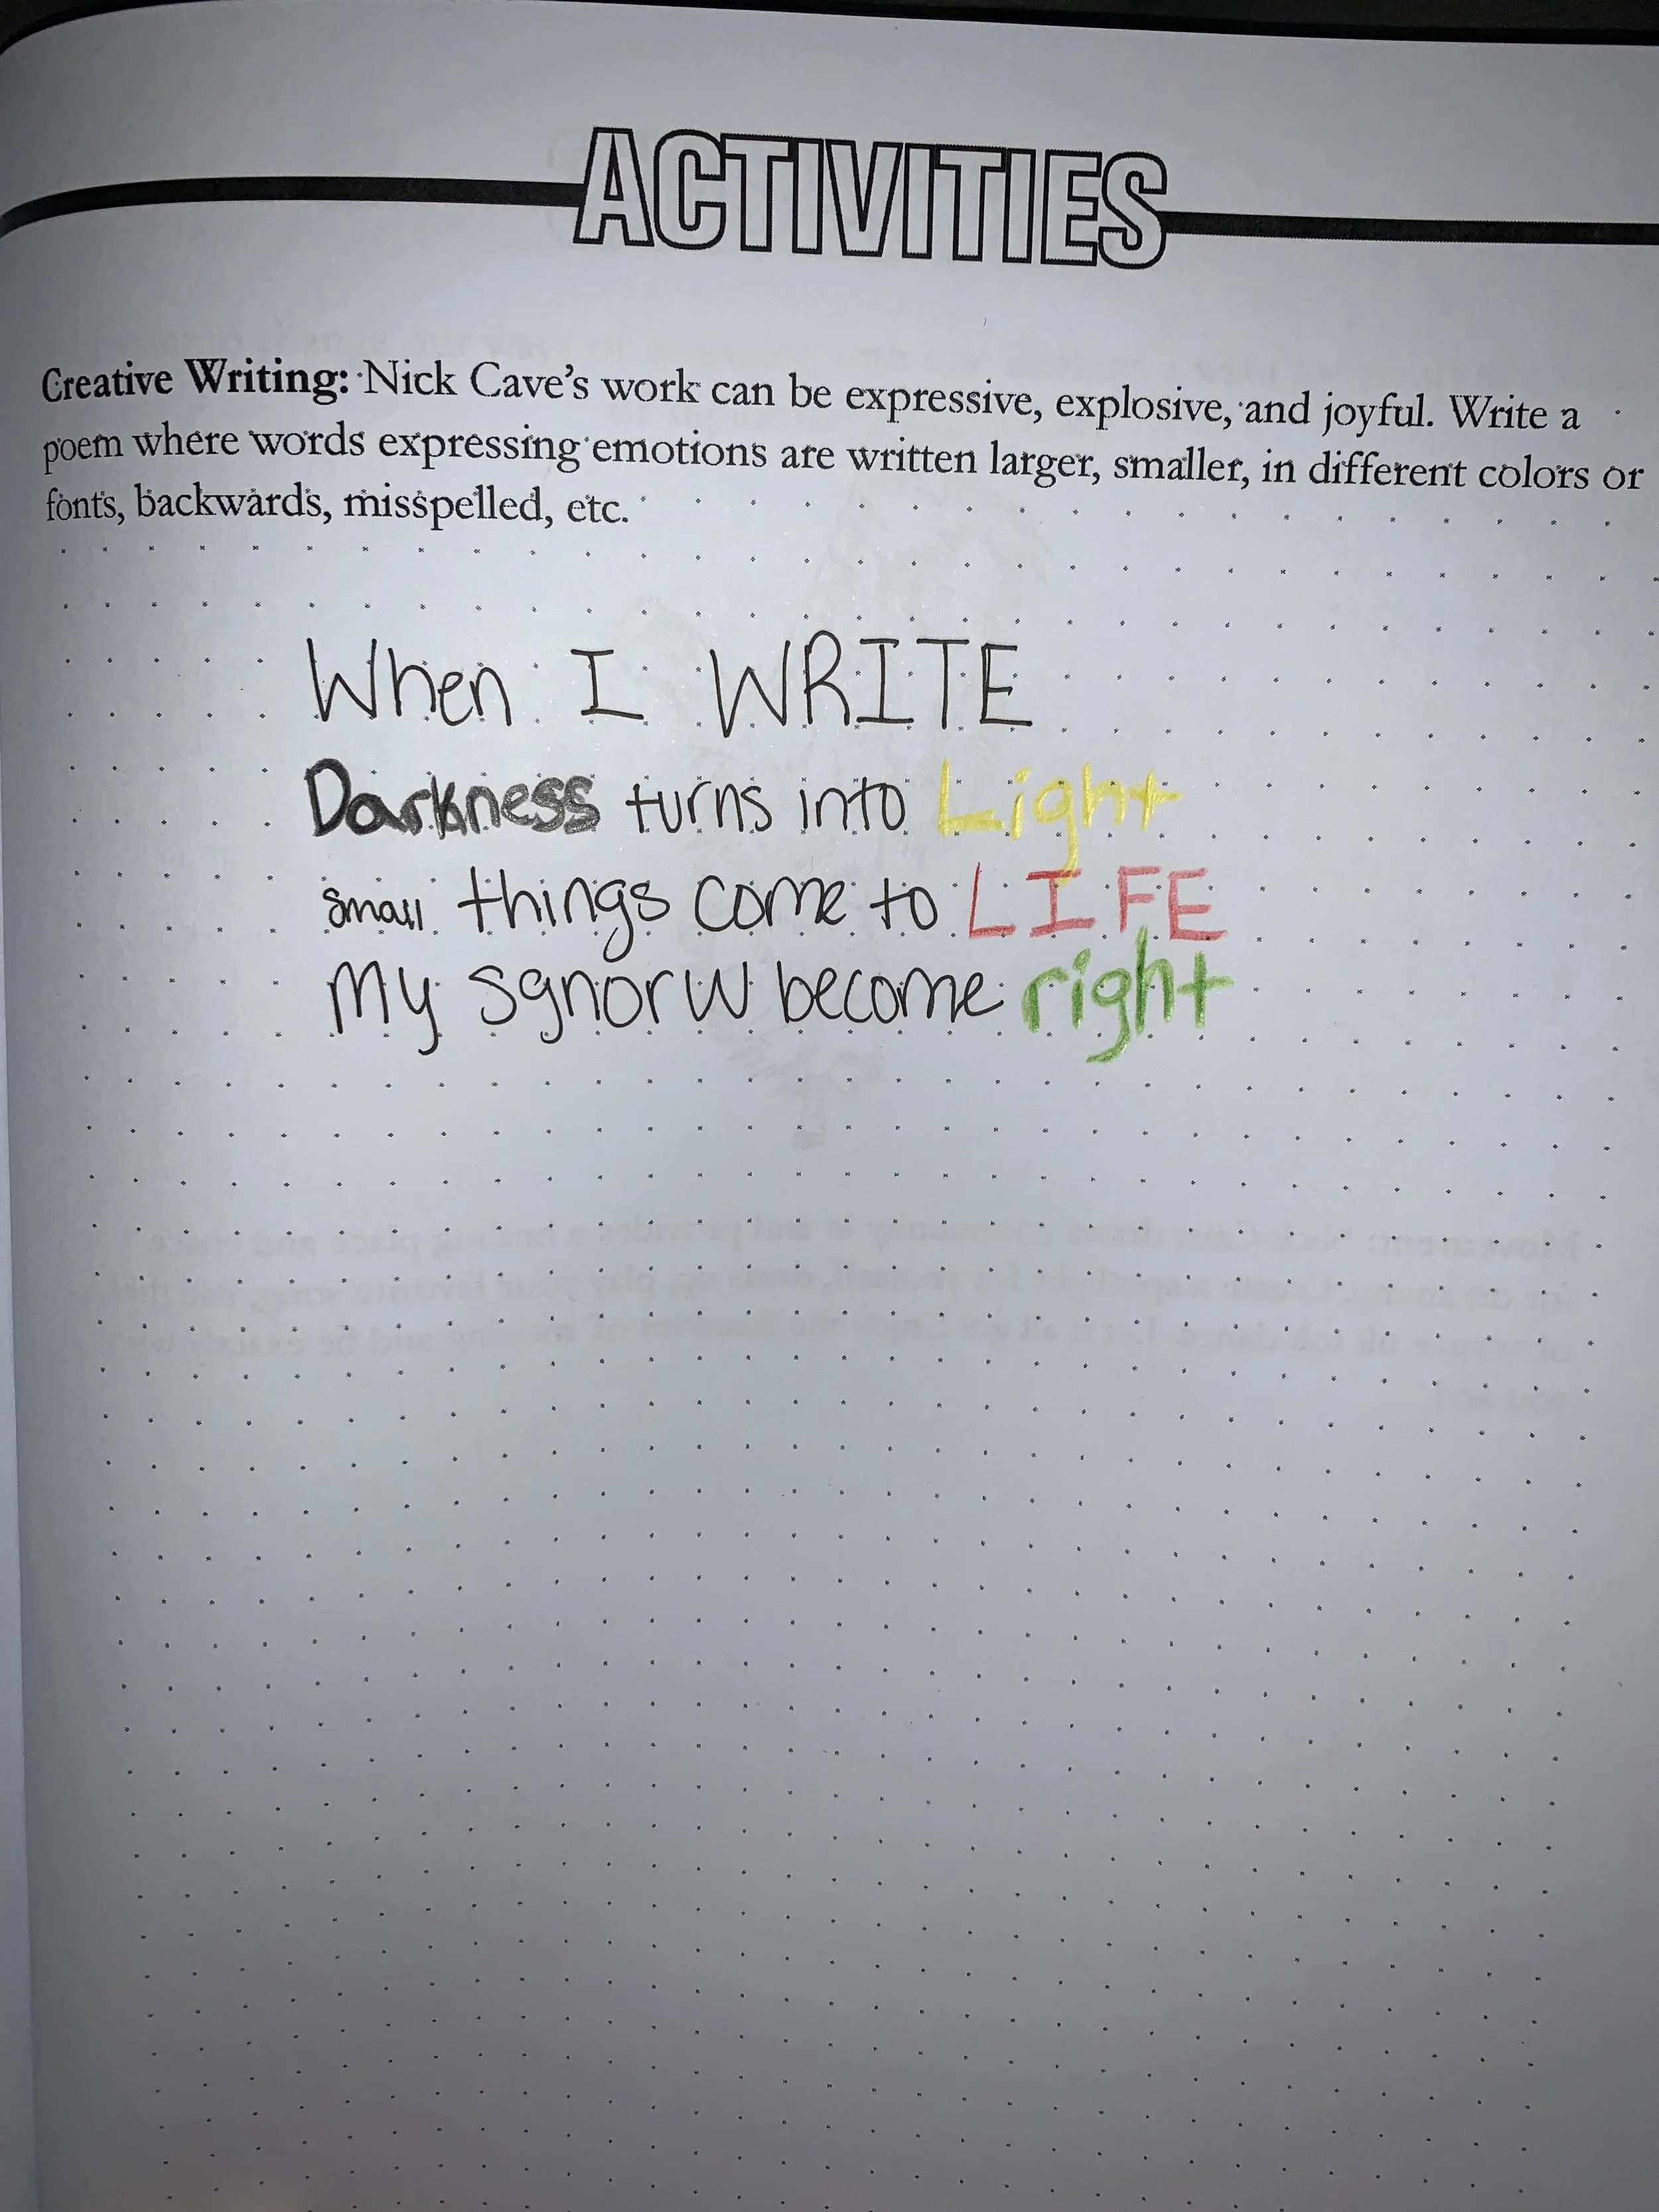 ACTIVITIES
Creative Writing: Nick Cave's work can be expressive, explosive, and joyful. Write a
poem where words expressing emotions are written larger, smaller, in different colors or
fonts, backwards, misspelled, etc.
When I WRITE
Darkness turns into Light
small things come to LIFE
My sgnorw become right